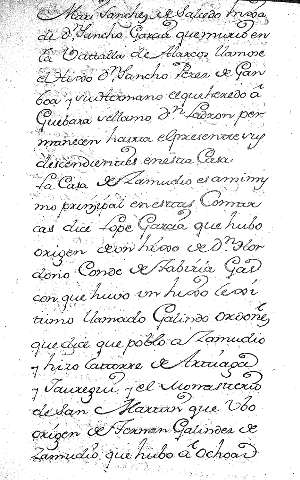 Mari Sanchez de Salcedo hixa
de Dn. Sancho Garcia que murio en
la Vattalla de Alarcos llamose
el hixo Dn. Sancho Perez de Gan
boa y su Hermano el que heredo á
Guebara se llamo Dn. Ladron per
manecen hasta el presente vs
descendientes en esta Casa.
La Casa de Zamudio es asimis
mo principal en estas Comar
cas dice Lope Garcia que hubo
origen de vn hixo de Dn.
doño Conde de Gas
con que huvo vn hixo lexi
timo llamado Galindo ordoñez
que dice que poblo a Zamudio
y hizo la torre de Arteaga
y Jauregui y el Monasterio
de San Martin que Vbo
origen de Fernan Galindez de
Zamudio, que hubo á Ochoa